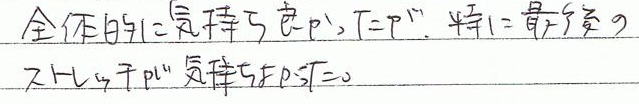 全体的に気持ち良かったです。特に最後の
ストレッチが気持ちよかった。